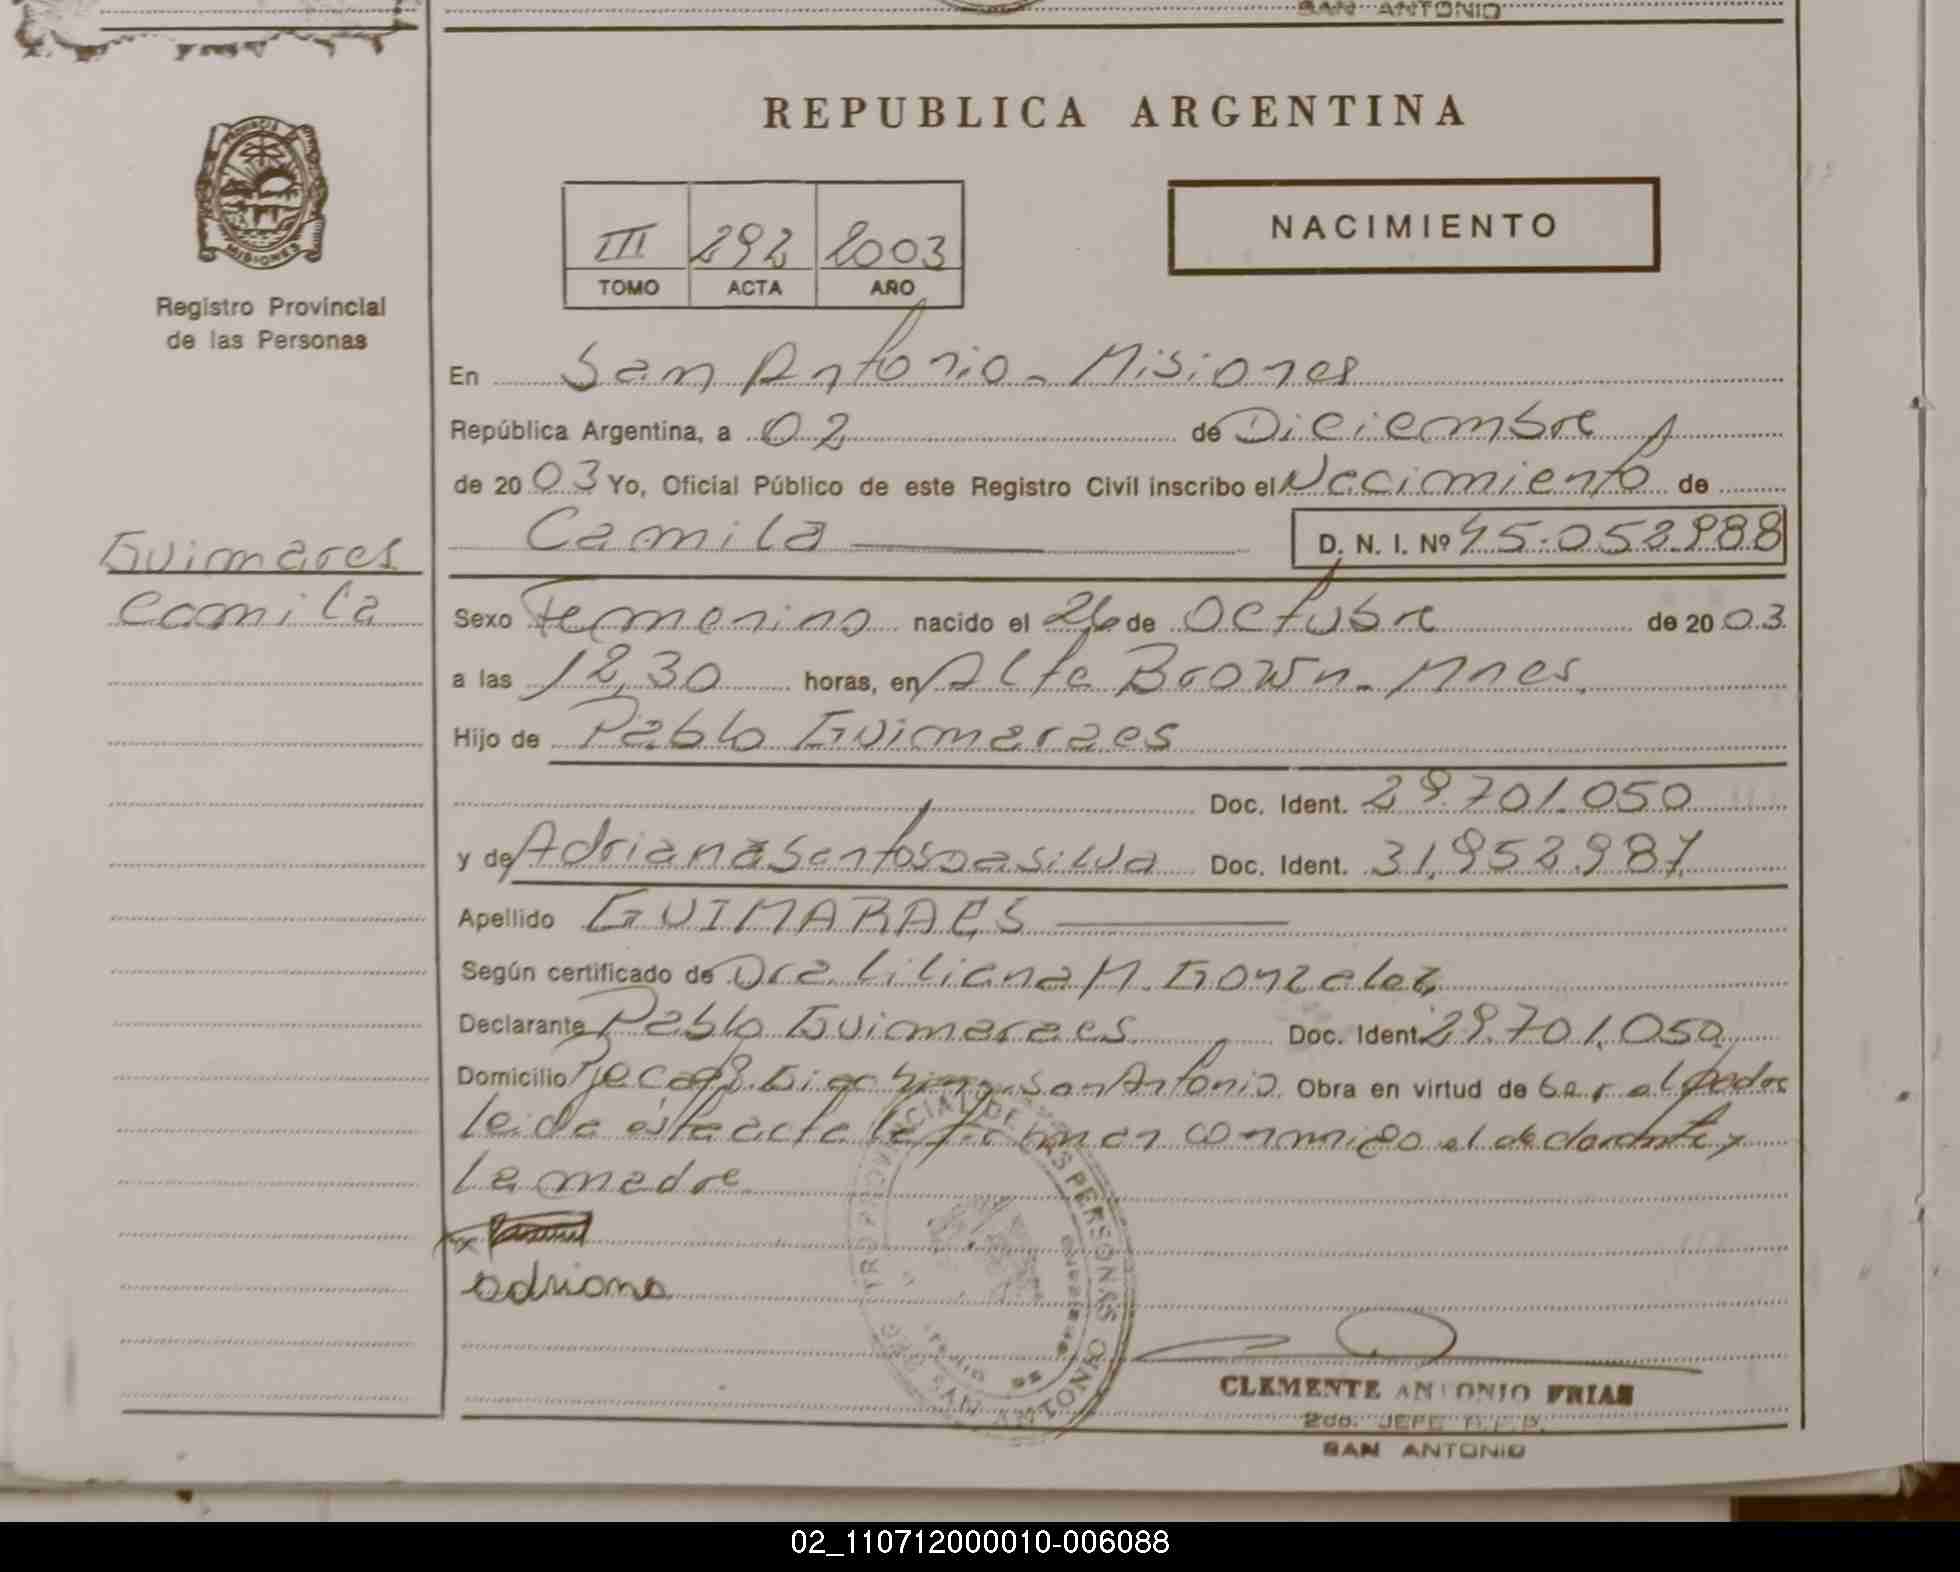 SAN ANTONIO
REPUBLICA ARGENTINA
PROVINCIA
MISIONES
Registro Provincial
de las Personas
III 292 2003
TOMO ACTA AÑO
NACIMIENTO
En San Antonio - Misiones
República Argentina, a 02 de Diciembre
de 2003 Yo, Oficial Público de este Registro Civil inscribo el Nacimiento de
Camila D. N. I. Nº 45.052.988
Guimares
Camila
Sexo Femenino nacido el 26 de Octubre de 2003
a las 12,30 horas, en Alte Brown - Mnes.
Hijo de Pablo Guimaraes
Doc. Ident. 29.701.050
y de Adriana Santos Da Silva Doc. Ident. 31.952.987
Apellido GUIMARAES
Según certificado de Dra. Liliana M. Gonzalez
Declarante Pablo Guimaraes Doc. Ident. 29.701.050
Domicilio San Antonio. Obra en virtud de ser el padre
leida esta acta la firman conmigo el declarante y
la madre
adriana
REGISTRO PROVINCIAL DE LAS PERSONAS
SAN ANTONIO
CLEMENTE ANTONIO FRIAS
2do. JEFE R.P.P.
SAN ANTONIO
02_110712000010-006088